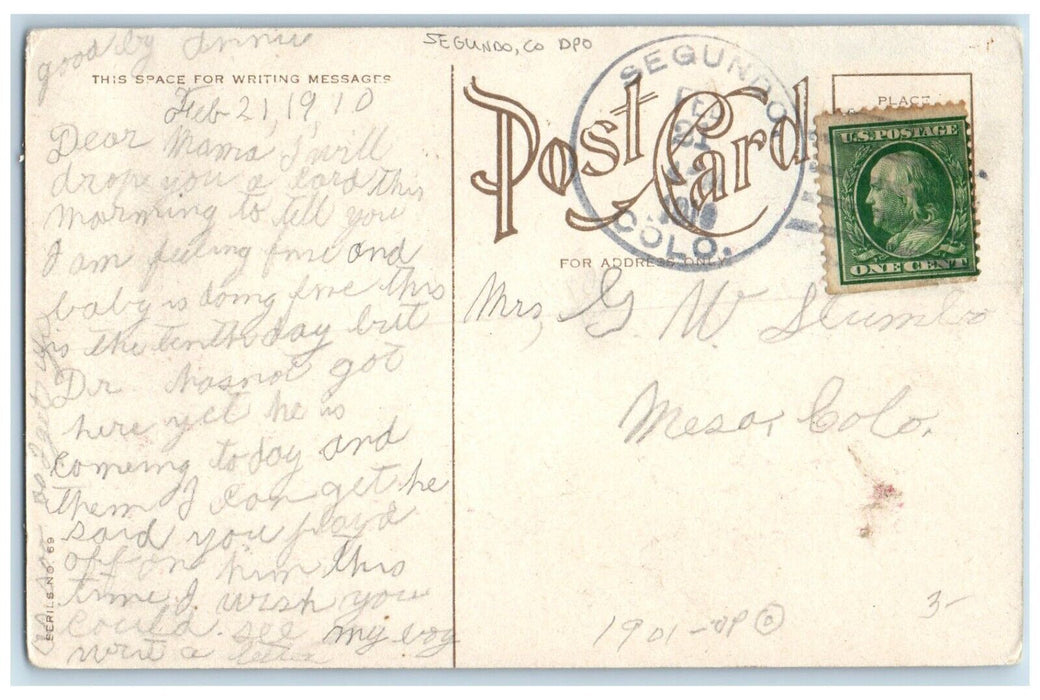 good by Annie
SEGUNDO, CO DPO
THIS SPACE FOR WRITING MESSAGES
Post Card
PLACE
SEGUNDO
FEB
21
1910
COLO.
U.S. POSTAGE
ONE CENT
FOR ADDRESS ONLY
Feb-21, 1910
Dear Mama I will
drope you a card this
morning to tell you
I am feeling fine and
baby is doing fine this
is the tenth day but
Dr hasnot got
here yet he is
comeing today and
them I can get he
said you playd
off on him this
time. I wish you
could see my boy
write a letter
as soon as you get
SERIES NO 69
Mrs, G. W. Stumbo
Mesa, Colo.
1901-UP
3-